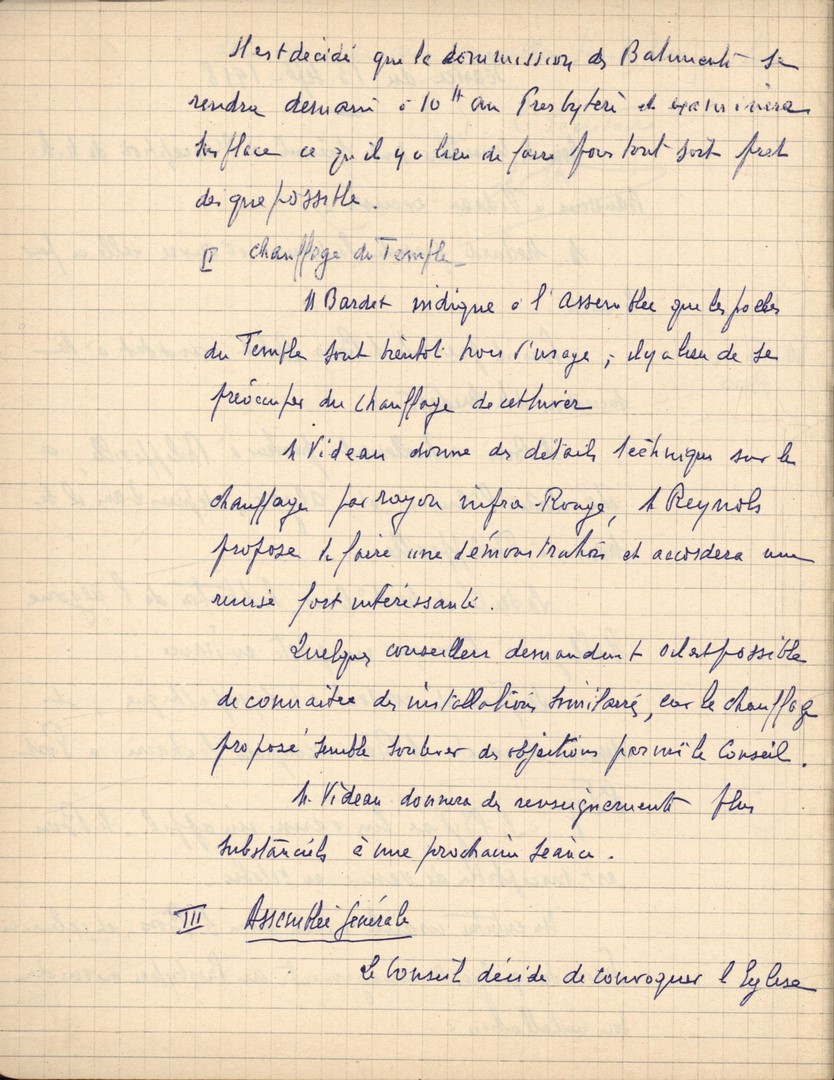 Il est décidé que la commission des Batiments se
rendra demain à 10 H au Presbytère et examinera
sur place ce qu'il y a lieu de faire pour tout soit pret
des que possible.
II chauffage du Temple
M Bardet indique à l'assemblée que les poeles
du Temple sont bientôt hors d'usage ; il y a lieu de se
préocuper du chauffage de cet hiver
M Videau donne des détails technique sur le
chauffage par rayon infra-Rouge, M Reynols
propose de faire une démonstration et accordera une
remise fort intéressante.
Quelques conseillers demandent s'il est possible
de connaitre des installations similaires, car le chauffage
proposé semble soulever des objections parmi le Conseil.
M. Videau donnera des renseignements plus
substanciels à une prochaine séance.
III Assemblée Générale
Le Conseil décide de convoquer l'Eglise